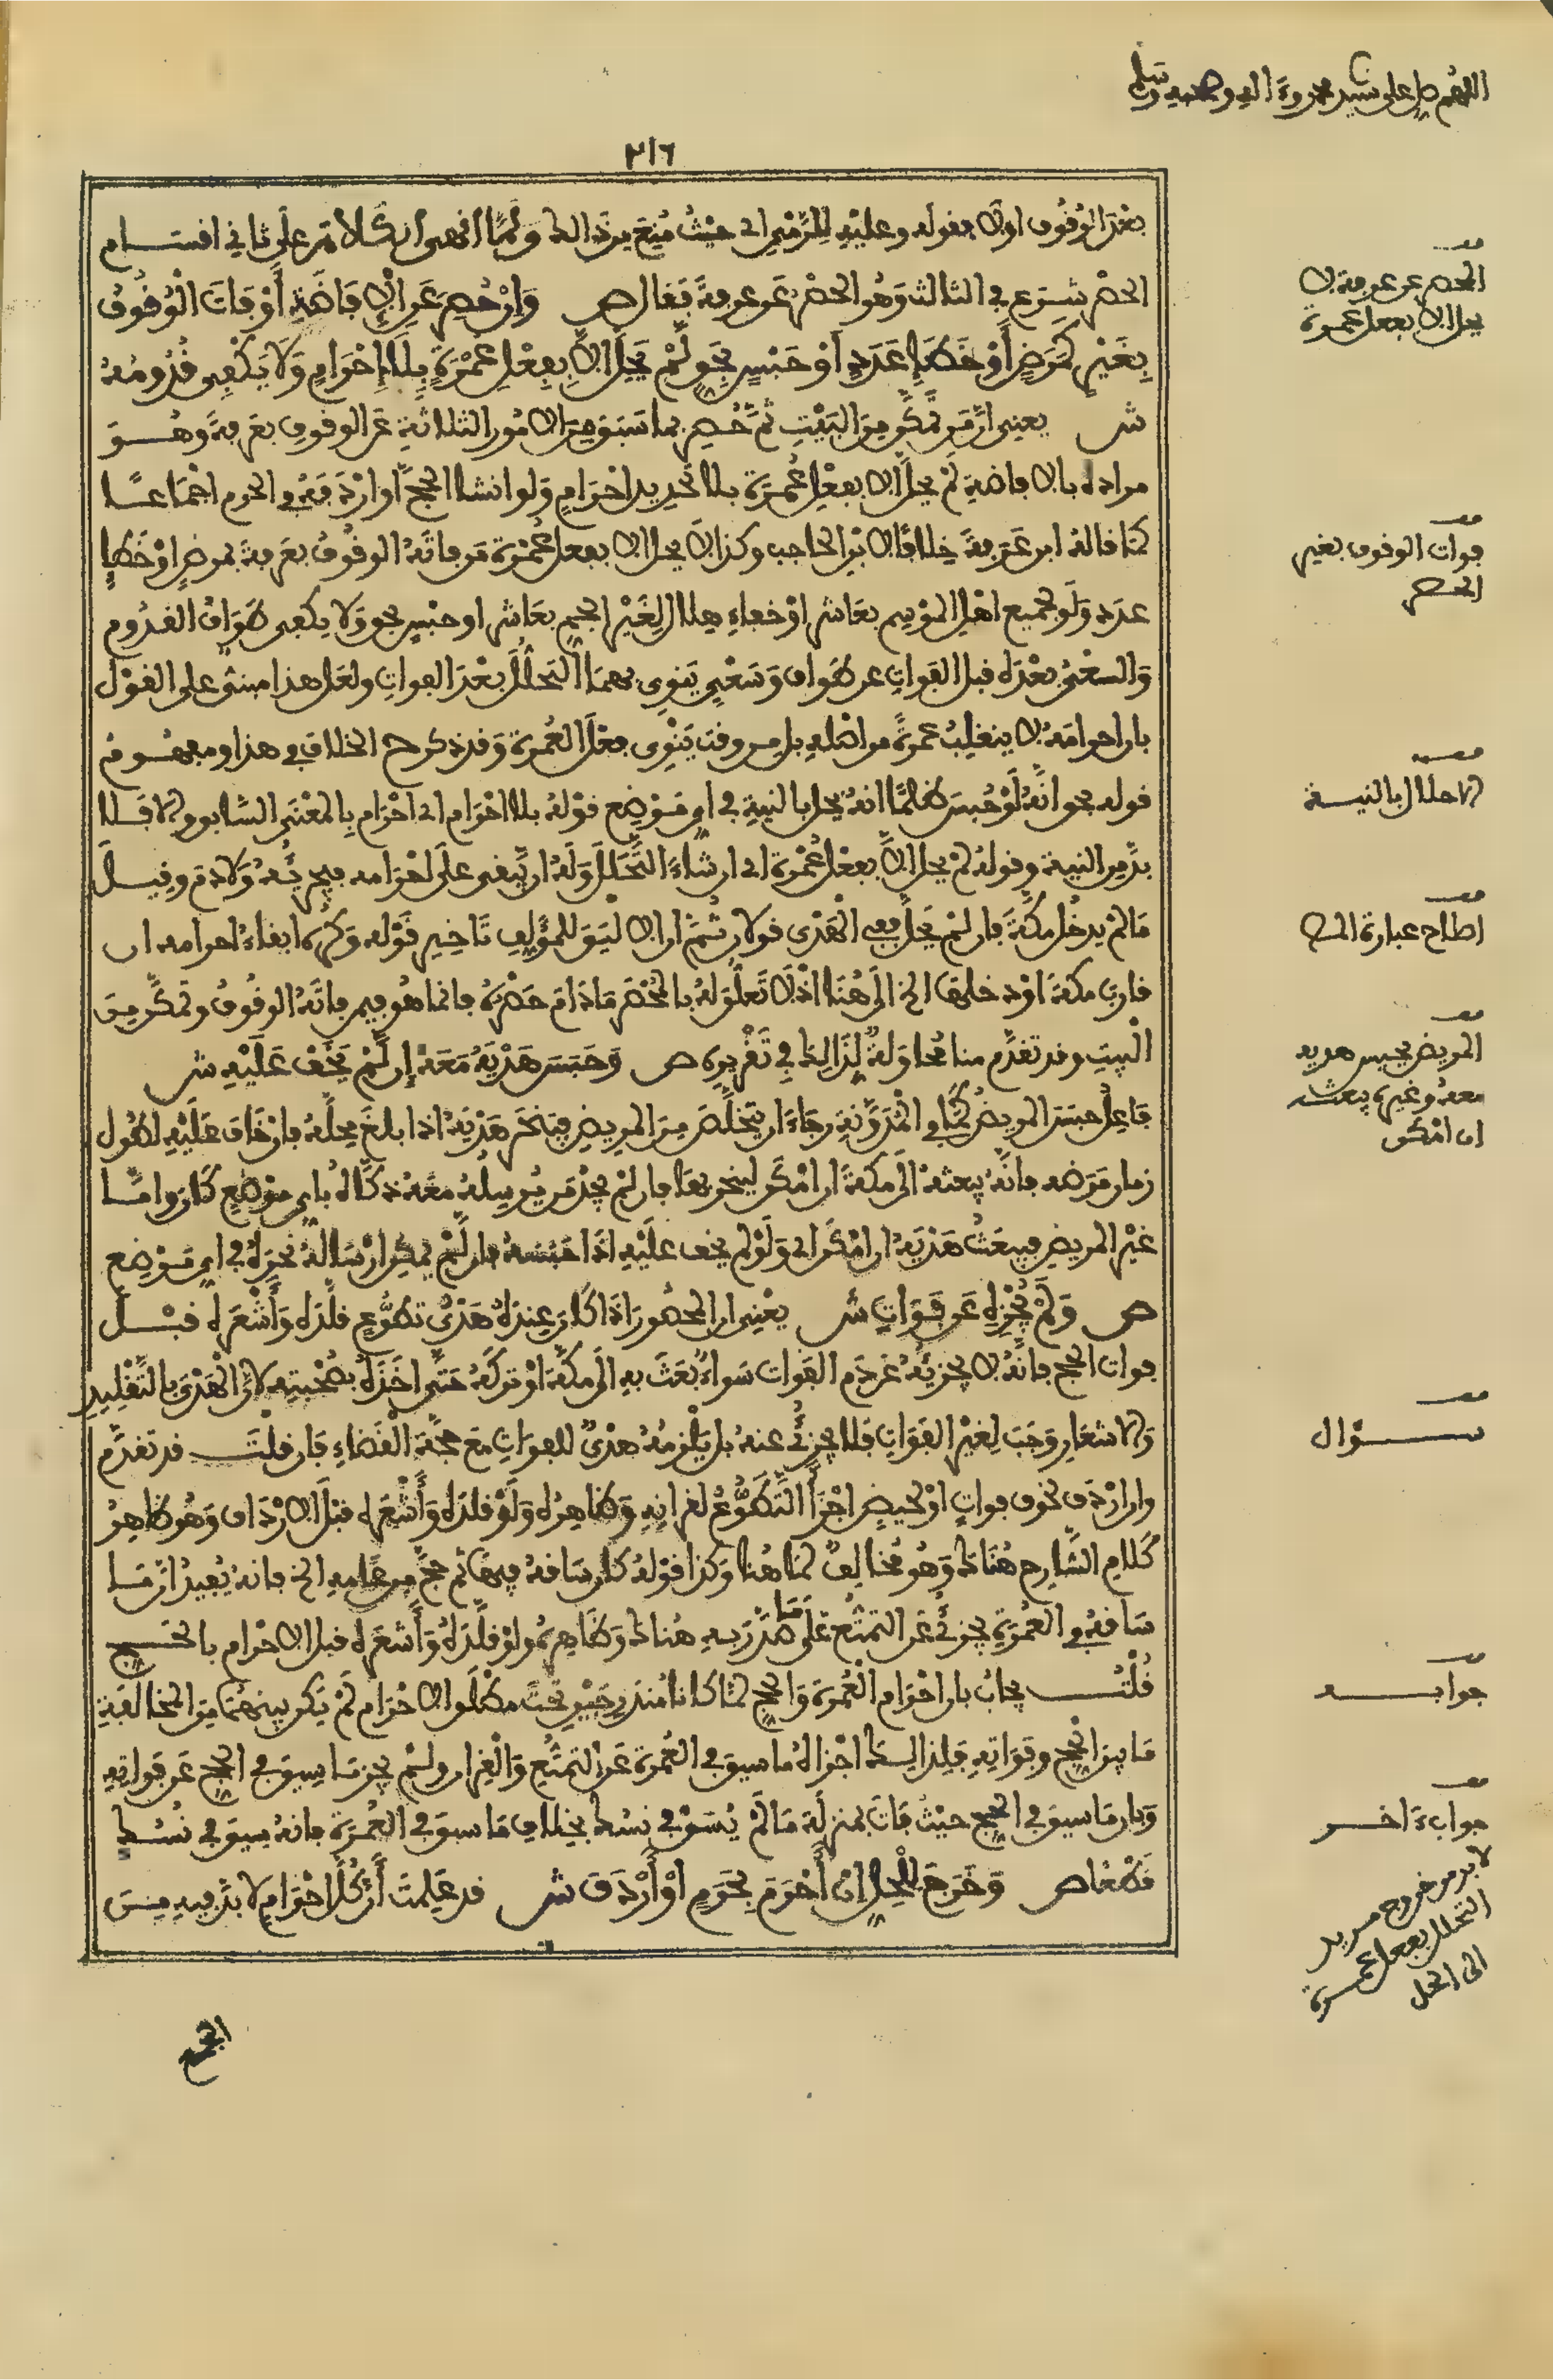 اللهم صل على سيدنا محمد وءاله وصحبه وسلم
٢١٦
بعد الوقوف أولا بقوله وعليه للرمي أي حيث منع من ذلك ولما أنهى الكلام على ثاني أقسام
الحصر شرع في الثالث وهو الحصر عن عرفة فقال ص وإن حصر عن الإفاضة أو فات الوقوف
بغير كمرض أو خطإ عدد أو حبس بحق لم يحل إلا بفعل عمرة بلا إحرام ولا يكفي قدومه
ش يعني أن من تمكن من البيت ثم حصر بما سبق من الأمور الثلاثة عن الوقوف بعرفة وهو
مراده بالإفاضة لم يحل إلا بفعل عمرة بلا تجديد إحرام ولو انشأ الحج أو أردفه في الحرم اجماعا
كما قاله ابن عرفة خلافا لابن الحاجب وكذا لا يحل إلا بفعل عمرة من فاته الوقوف بعرفة بمرض أو خطإ
عدد ولو لجميع أهل الموسم بعاشر أو خفاء هلال لغير الجم بعاشر أو حبس بحق ولا يكفي طواف القدوم
والسعي بعده قبل الفوات عن طواف وسعي ينوي بهما التحلل بعد الفوات ولعل هذا مبني على القول
بأن احرامه لا ينقلب عمرة من أصله بل من وقت ينوي فعل العمرة وقد ذكر ح الخلاف في هذا ومفهوم
قوله بحق انه لو حبس ظلما انه يحل بالنية في أي موضع قوله بلا احرام أي احرام بالمعنى السابق وإلا فلا
بد من النية وقوله لم يحل إلا بفعل عمرة أي ان شاء التحلل وله ان يبقى على احرامه فيجزئه ولا دم وقيل
ما لم يدخل مكة فإن لم يحل ففي الهدي قولان ثم ان الأليق للمؤلف تأخير قوله وكره ابقاء احرامه ان
قارب مكة أو دخلها الخ إلى هنا اذ لا تعلق له بالمحصر ما دام حصره فانما هو فيمن فاته الوقوف وتمكن من
البيت وقد تقدم منا محاولة لذلك في تقريره ص وحبس هديه معه إن لم يخف عليه ش
فاعل حبس المريض كما في المدونة رجاء ان يتخلص من المرض فينحر هديه اذا بلغ محله فإن خاف عليه لطول
زمان مرضه فإنه يبعثه إلى مكة ان أمكن لينحر بها فإن لم يجد من يرسله معه ذكاه بأي موضع كان وأما
غير المريض فيبعث هديه ان أمكن أي ولو لم يخف عليه اذا حبسه فإن لم يمكن ارساله نحره في أي موضع
ص ولم يجزه عن فوات ش يعني ان المحصور اذا كان عنده هدي تطوع قلده وأشعره قبل
فوات الحج فإنه لا يجزئه عن دم الفوات سواء بعث به إلى مكة أو تركه حتى أخذه بصحبته لأن الهدي بالتقليد
والاشعار وجب لغير الفوات فلا يجزئ عنه بل يلزمه هدي للفوات مع حجة القضاء فإن قلت قد تقدم
وإن أردف لخوف فوات أو لحيض أجزأ التطوع لقرانه وظاهره ولو قلده وأشعره قبل الارداف وهو ظاهر
كلام الشارح هناك وهو مخالف لما هنا وكذا قوله كأن ساقه فيها ثم حج من عامه الخ فانه يفيد أن ما
ساقه في العمرة يجزئ عن التمتع على ما صدر به هناك وظاهره ولو قلده وأشعره قبل الاحرام بالحج
قلت يجاب بأن احرام العمرة والحج لما كانا مندرجين تحت مطلق الاحرام لم يكن بينهما من المخالفة
ما بين الحج وفواته فلذلك اجزاه ما سيق في العمرة عن التمتع والقران ولم يجز ما سيق في الحج عن فواته
وبأن ما سيق في الحج حيث فات بمنزلة ما لم يسق في نسك بخلاف ما سيق في العمرة فانه سيق في نسك
قطعا ص وخرج للحل إن أحرم بحرم أو أردف ش قد علمت أن كل احرام لا بد فيه من
الجمع
الحصر عن عرفة لا
يحل إلا بفعل عمرة
فوات الوقوف بغير
الحصر
الاحلال بالنية
اصلاح عبارة المص
المريض يحبس هديه
معه وغيره يبعثه
ان امكن
سؤال
جوابه
جواب ءاخر
لا بد من خروج مريد
التحلل بفعل عمرة
الى الحل